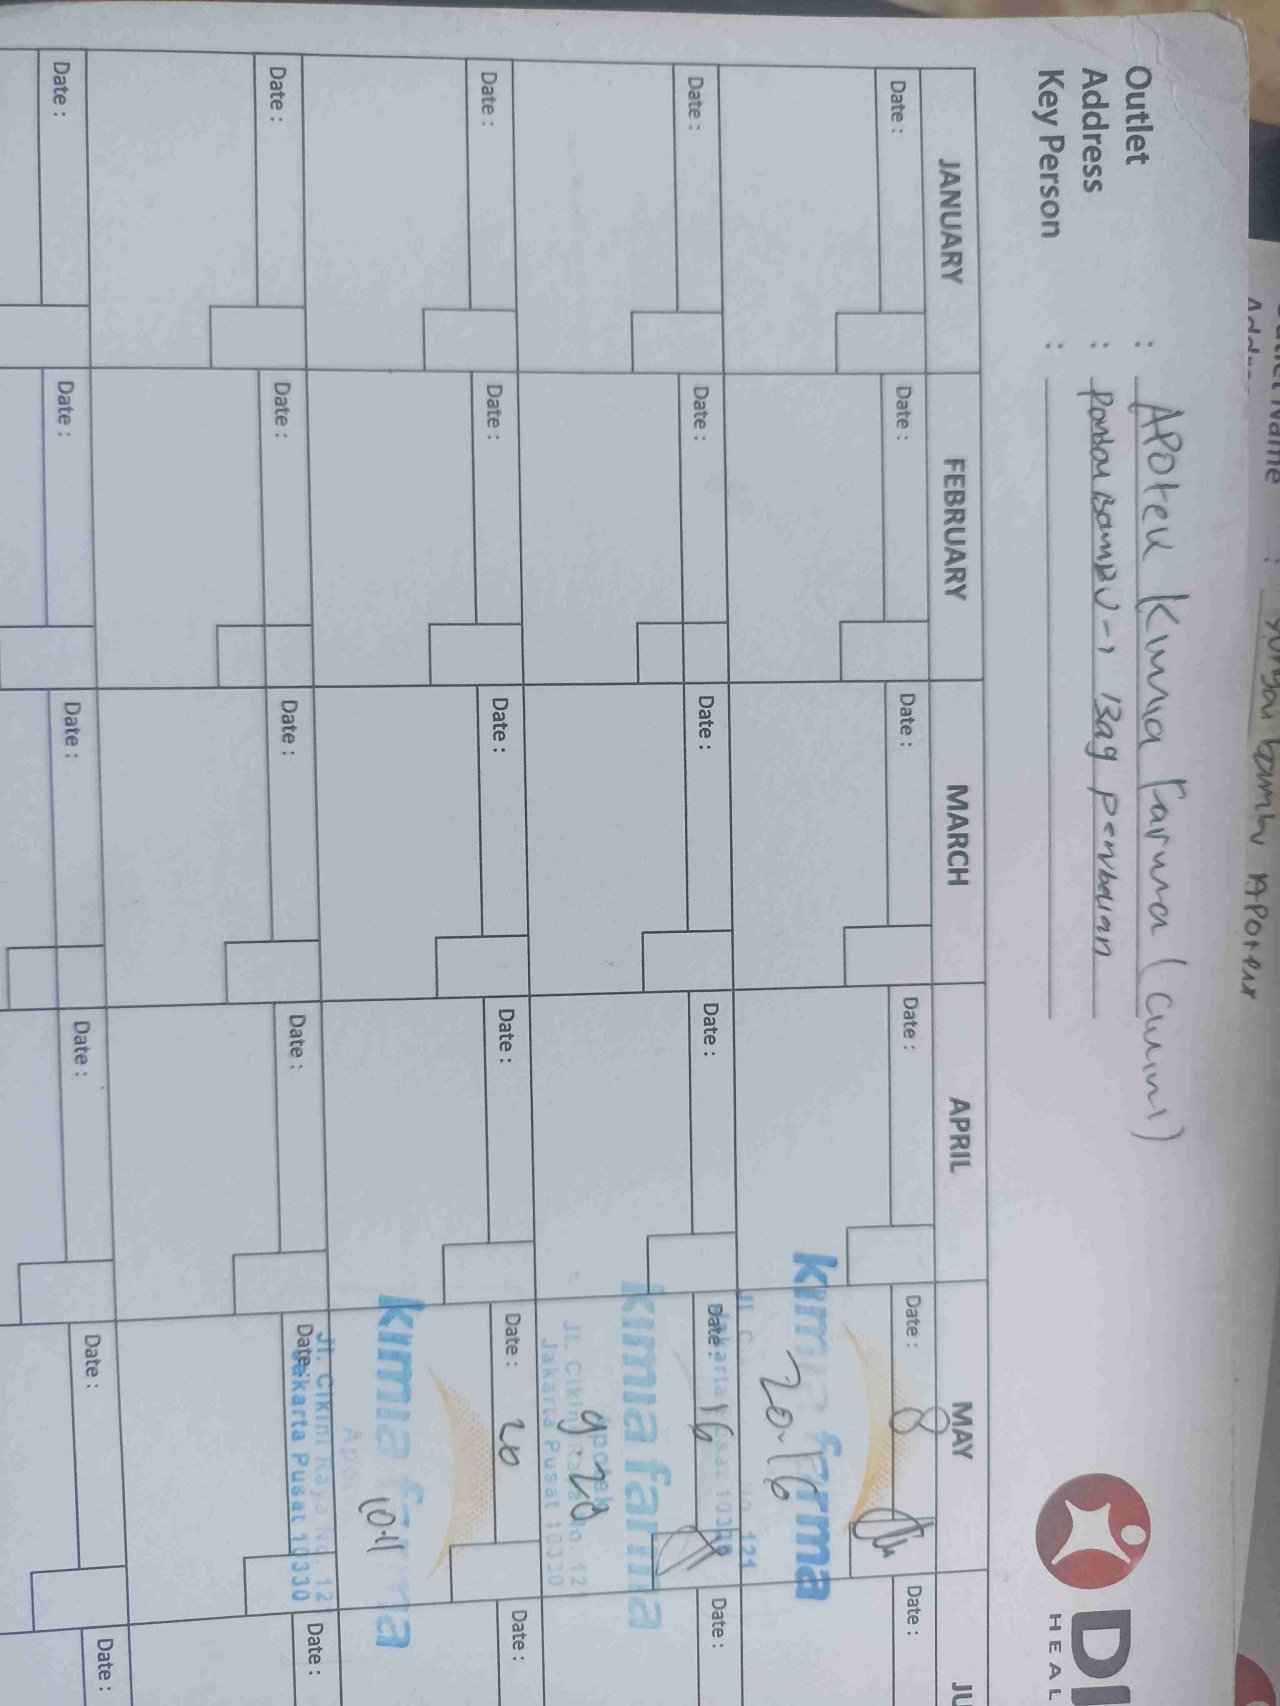 Outlet : Apotek Kimia Farma (Cikini)
Address : Pondok Bambu -> Bag pembelian
Key Person :
DI
HEAL
JANUARY FEBRUARY MARCH APRIL MAY JU
Date : Date : Date : Date : Date : 8 Date :
kimia farma
20.16
Jakarta Pusat 10330
Date : Date : Date : Date : Date : 16 Date :
kimia farma
Apotek
9.20
Jl. Cikini Raya No. 121
Jakarta Pusat 10330
Date : Date : Date : Date : Date : 20 Date :
kimia farma
10.11
Jl. Cikini Raya No. 12
Jakarta Pusat 10330
Date : Date : Date : Date : Date : Date :
Date : Date : Date : Date : Date : Date :